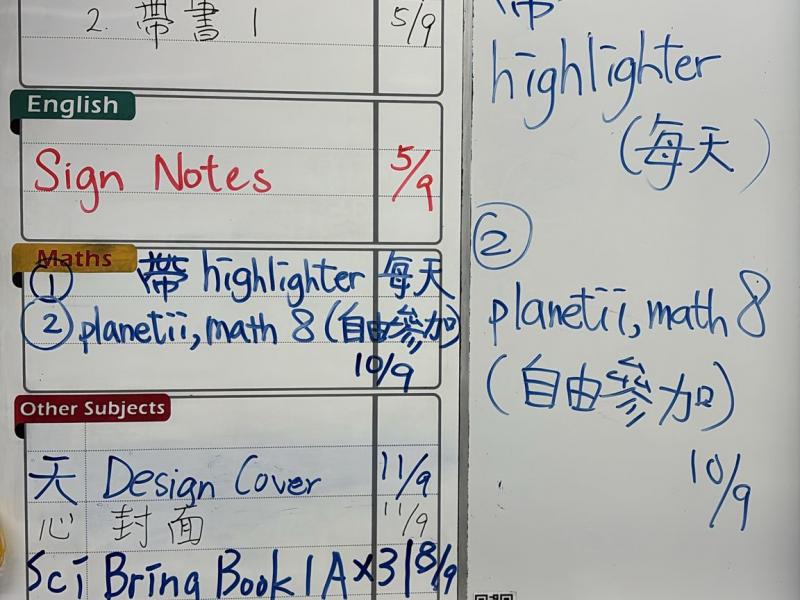 2. 帶書1 5/9
English
Sign Notes 5/9
Maths
① 帶 highlighter 每天
② planetii, math 8 (自由參加)
10/9
Other Subjects
天 Design Cover 11/9
心 封面 11/9
Sci Bring Book 1A×3 8/9
帶
highlighter
(每天)
②
planetii, math 8
(自由參加)
10/9